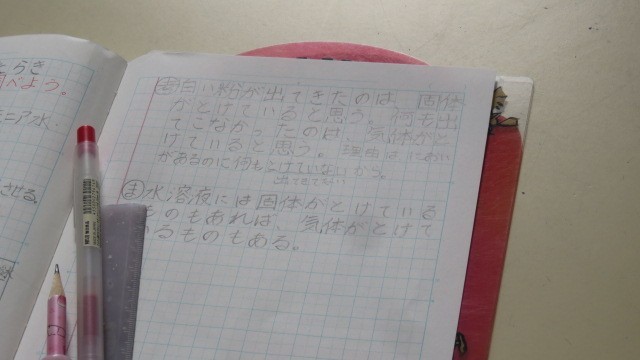 とらき
調べよう。
モニア水
させる。
考 白い粉が出てきたのは、固体
がとけていると思う。何も出
てこなかったのは、気体がと
けていると思う。理由はにおい
があるのに何も
出てきてない から。
ま 水溶液には固体がとけている
ものもあれば、気体がとけて
いるものもある。